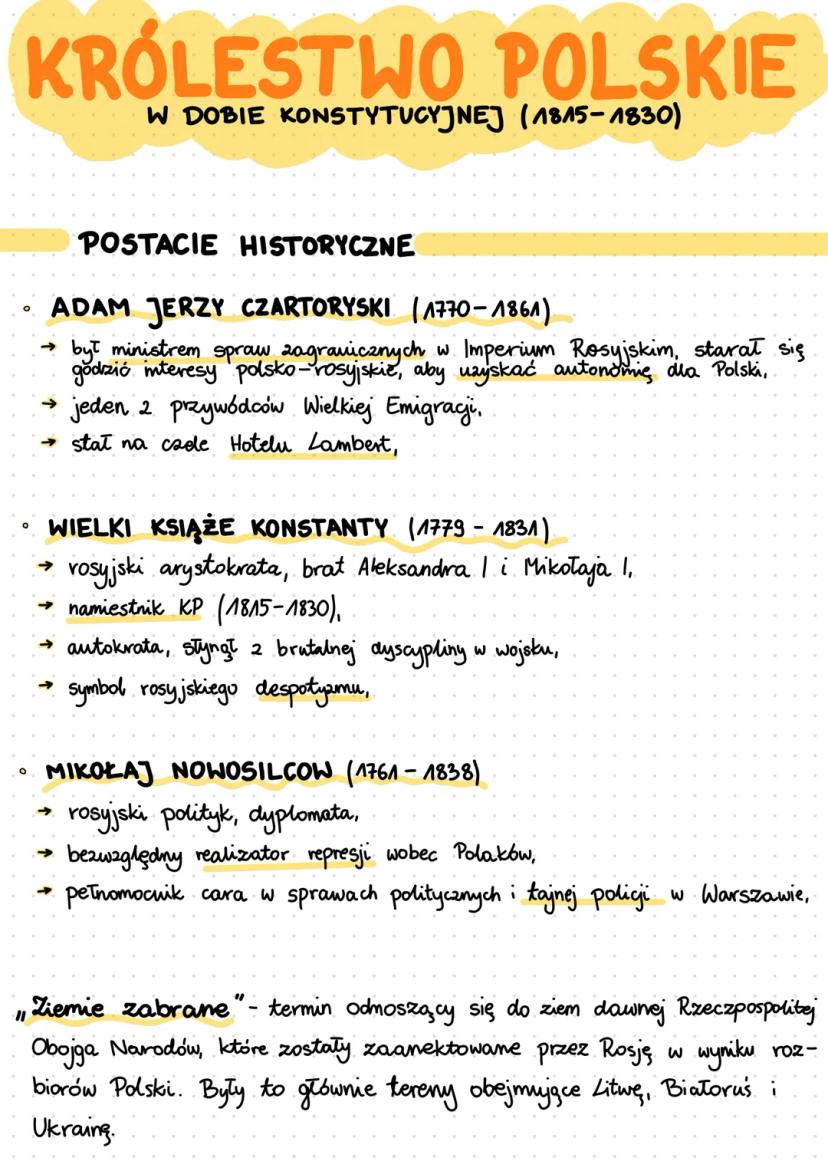 KRÓLESTWO POLSKIE
W DOBIE KONSTYTUCYJNEJ (1815-1830)
POSTACIE HISTORYCZNE
◦ ADAM JERZY CZARTORYSKI (1770-1861)
→ był ministrem spraw zagranicznych w Imperium Rosyjskim, starał się
godzić interesy polsko-rosyjskie, aby uzyskać autonomię dla Polski,
→ jeden z przywódców Wielkiej Emigracji,
→ stał na czele Hotelu Lambert,
◦ WIELKI KSIĄŻE KONSTANTY (1779 - 1831)
→ rosyjski arystokrata, brat Aleksandra I i Mikołaja I,
→ namiestnik KP (1815-1830),
→ autokrata, słynął z brutalnej dyscypliny w wojsku,
→ symbol rosyjskiego despotyzmu,
◦ MIKOŁAJ NOWOSILCOW (1761 - 1838)
→ rosyjski polityk, dyplomata,
→ bezwzględny realizator represji wobec Polaków,
→ pełnomocnik cara w sprawach politycznych i tajnej policji w Warszawie,
„Ziemie zabrane" - termin odnoszący się do ziem dawnej Rzeczpospolitej
Obojga Narodów, które zostały zaanektowane przez Rosję w wyniku roz-
biorów Polski. Były to głównie tereny obejmujące Litwę, Białoruś i
Ukrainę.